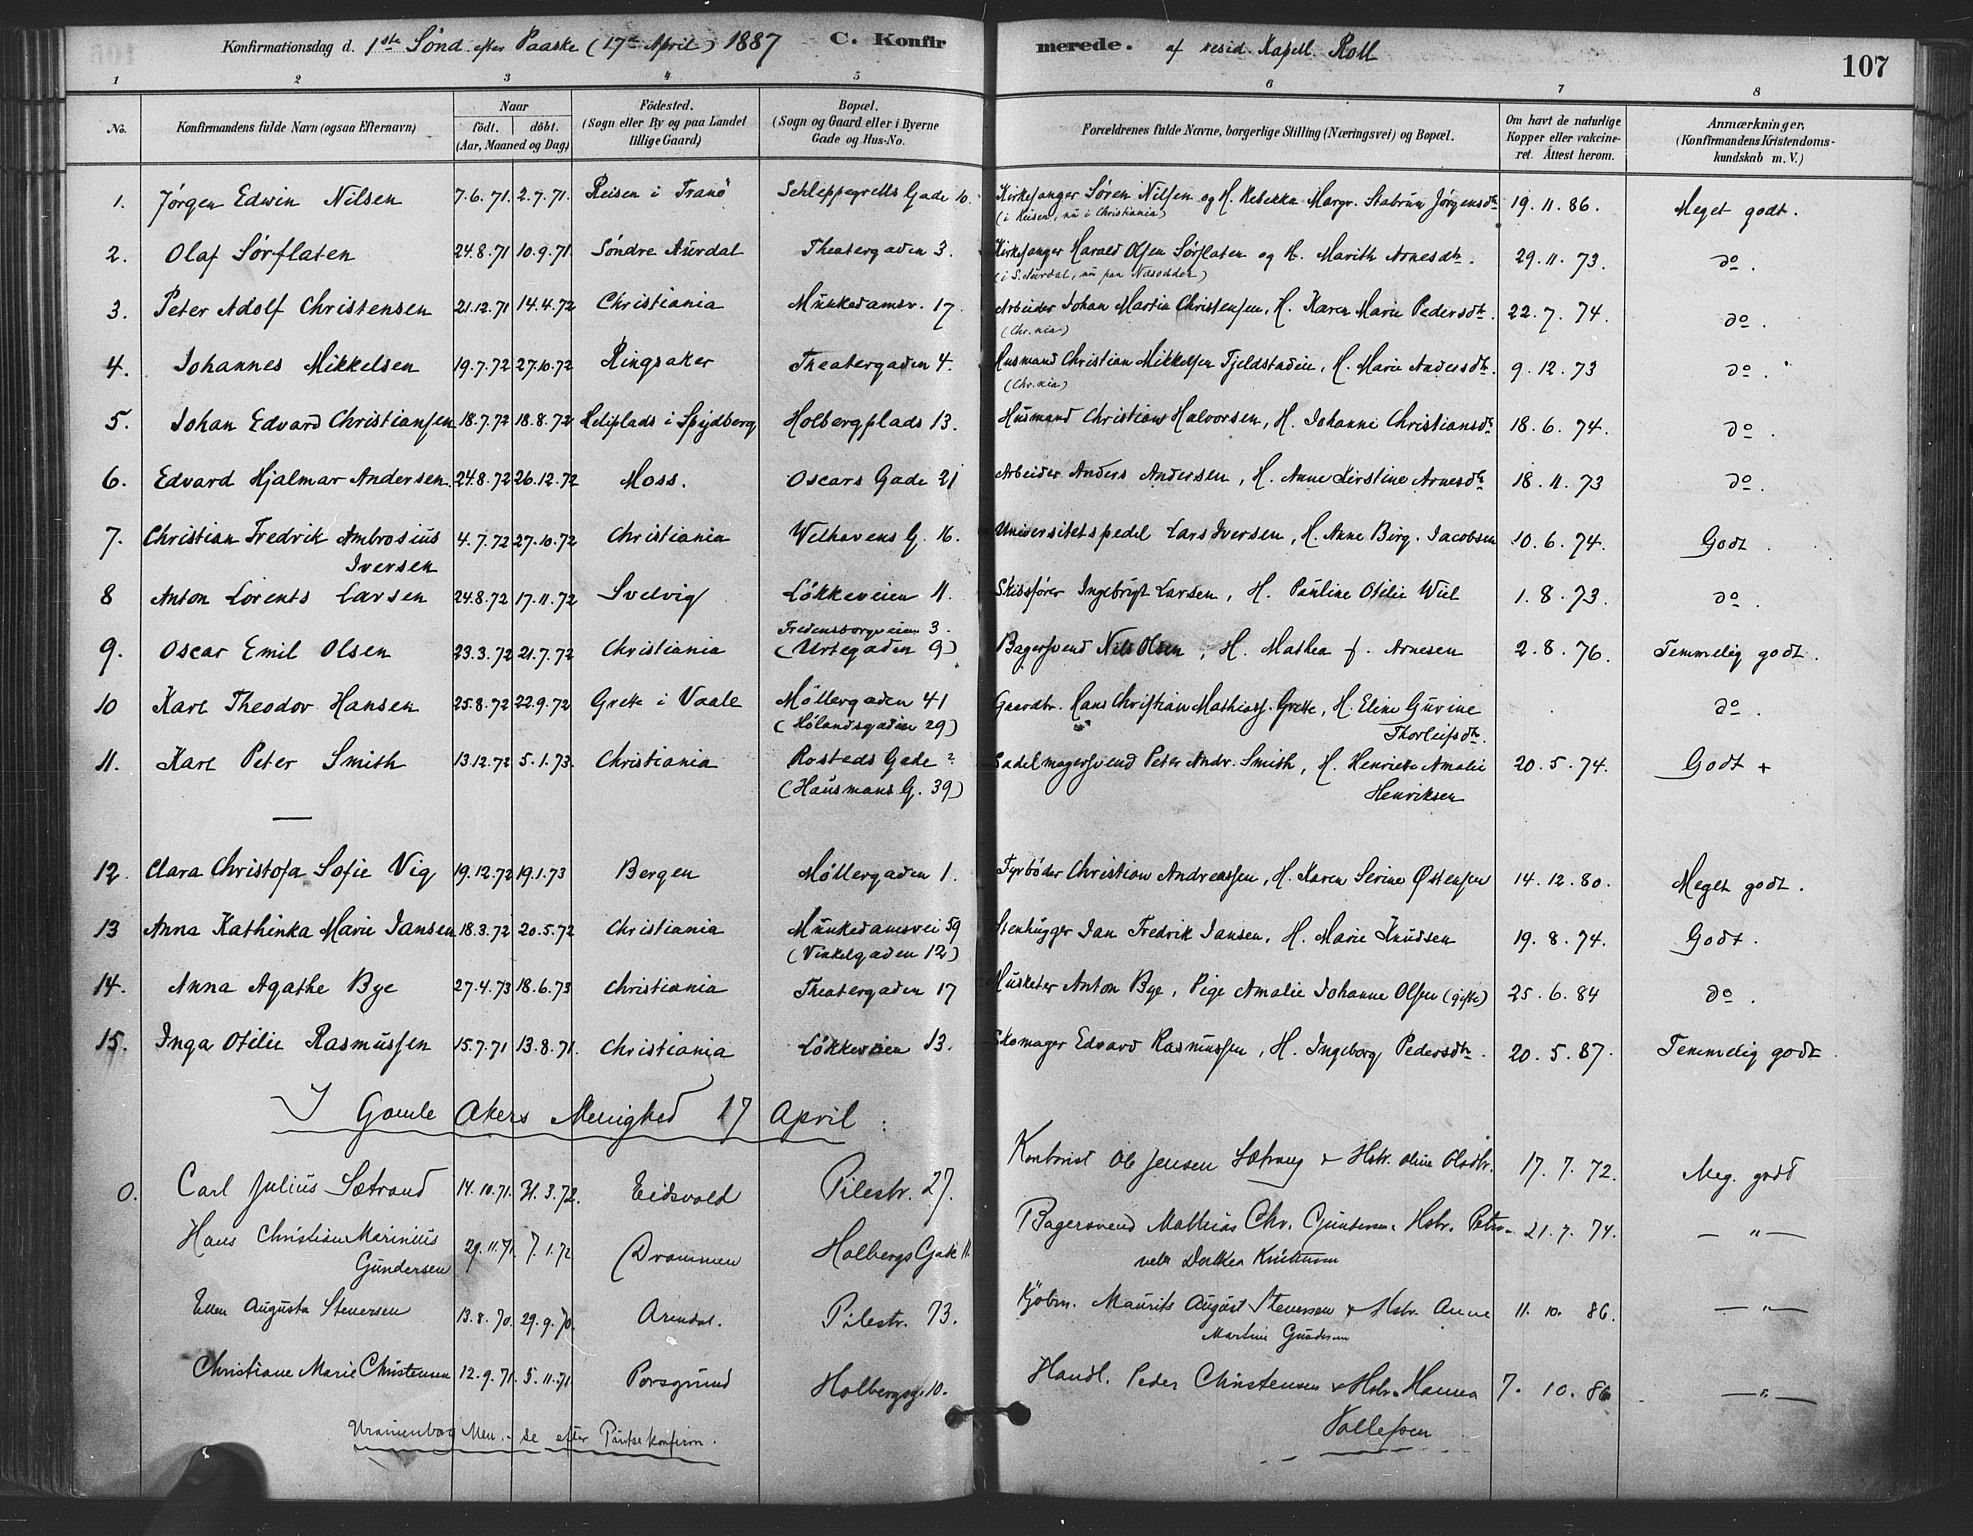 Konfirmationsdag d. 1ste Sønd. efter Paaske (17de April) 1887 C. Konfirmerede. af resid. Kapell. Roll 107
1 2 3 4 5 6 7 8
No. Konfirmandens fulde Navn (ogsaa Efternavn) Naar födt. döbt. (Aar, Maaned og Dag) Födested. (Sogn eller By og paa Landet tillige Gaard) Bopæl. (Sogn og Gaard eller i Byerne Gade og Hus-No. Forældrenes fulde Navne, borgerlige Stilling (Næringsvei) og Bopæl. Om havt de naturlige Kopper eller vakcineret. Attest herom. Anmærkninger, (Konfirmandens Kristendomskundskab m. V.)
1. Jørgen Edwin Nilsen 7.6.71. 2.7.71. Reisen i Tranö Schleppegrells Gade 10. Kirkesanger Sören Nilsen og H. Rebekka Margr. Stabrun Jørgensdtr 19.11.86. Meget godt.
(i Reisen, nu i Christiania)
2. Olaf Sørflaten 24.8.71 10.9.71. Søndre Aurdal Theatergaden 3. Kirkesanger Harald Olsen Sørflaten og H. Marith Arnesdtr. 29.11.73. do.
(i S. Aurdal, nu paa Næsodden)
3. Peter Adolf Christensen 21.12.71 14.4.72 Christiania Munkedamsv. 17. Arbeider Johan Martin Christensen, H. Karen Marie Pedersdtr. 22.7.74. do.
(Chr.nia)
4. Johannes Mikkelsen 19.7.72 27.10.72 Ringsaker Theatergaden 4. Husmand Christian Mikkelsen Fjeldstadeie, H. Marie Andersdtr. 9.12.73 do.
(Chr.nia)
5. Johan Edvard Christiansen 18.7.72 18.8.72 Heliplads i Spydberg Holbergplads 13. Husmand Christian Halvorsen, H. Johanne Christiansdtr 18.6.74. do.
6. Edvard Hjalmar Andersen. 24.8.72 26.12.72 Moss. Oscars Gade 21 Arbeider Anders Andersen, H. Anne Kirstine Arnesdtr 18.11.73 do.
7. Christian Fredrik Ambrosius 4.7.72 27.10.72 Christiania Welhavens G. 16. Universitetspedel Lars Iversen, H. Anne Birg. Jacobsen 10.6.74. Godt.
Iversen
8 Anton Lorents Larsen 24.8.72 17.11.72 Svelvig Løkkeveien 11. Skibsfører Ingebrigt Larsen, H. Pauline Otilie Wiel 1.8.73. do.
Fredensborgveien 3.
9. Oscar Emil Olsen 23.3.72 21.7.72 Christiania (Urtegaden 9) Bagersvend Nils Olsen, H. Mathea f. Arnesen 2.8.76. Temmelig godt.
10 Karl Theodor Hansen 25.8.72 22.9.72 Grette i Vaale Møllergaden 41 Gaardbr. Hans Christian Mathiass. Grette, H. Eline Gurine do.
(Hølandsgaden 29) Thorleifsdtr.
11. Karl Peter Smith 13.12.72 5.1.73. Christiania Rosteds Gade 2 Sadelmagersvend Peter Andr. Smith, H. Henriette Amalie 20.5.74. Godt +
(Hausmans G. 39) Henriksen
12. Clara Christofa Sofie Vig 19.12.72 19.1.73 Bergen Møllergaden 1. Fyrbøder Christian Andreassen, H. Karen Serine Østensen 14.12.80. Meget godt.
13 Anna Kathinka Marie Jansen 18.3.72 20.5.72 Christiania Munkedamsvei 59 Stenhugger Jan Fredrik Jansen, H. Marie Knudsen 19.8.74. Godt.
(Vinkelgaden 12)
14. Anna Agathe Bye 27.4.73 18.6.73 Christiania Theatergaden 17 Musketer Anton Bye, Pige Amalie Johanne Olsen (gifte) 25.6.84 do.
15. Inga Otilie Rasmussen 15.7.71 13.8.71. Christiania Løkkeveien 13. Skomager Edvard Rasmussen, H. Ingeborg Pedersdtr. 20.5.87. Temmelig godt.
I Gamle Akers Menighed 17 April:
0. Carl Julius Sætrand 14.10.71. 31.3.72. Eidsvold Pilestr. 27. Kontorist Ole Jensen Sætrang & Hstr. Oline Olsdtr. 17.7.72. Meg. godt
Hans Christian Marinius 29.11.71. 7.1.72 Drammen Holbergs Gade 11. Bagersvend Mathias Chr. Gundersen & Hstr. Petro- 21.7.74. — " —
Gundersen nelle Dorthea Kristensen
Ellen Augusta Stenersen 13.8.70. 29.9.70. Arendal. Pilestr. 73. Kjøbm. Maurits August Stenersen & Hstr. Anne 11.10.86. — " —
Martine Gundersen
Christiane Marie Christensen 12.9.71. 5.11.71 Porsgrund Holbergsg. 10. Handl. Peder Christensen & Hstr. Hanna 7.10.86 — " —
Tollefsen
Uranienborg Men. - se efter Pintse Konfirm.